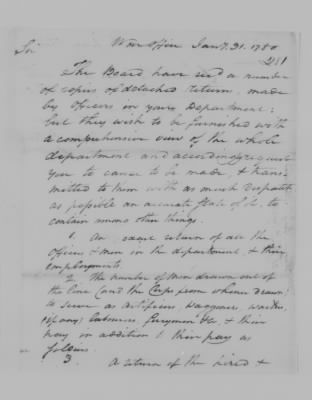 War Office Jany. 31. 1780
Sir
281
The Board have recd a number
of copies of detached returns, made
by Officers in your Department:
but they wish to be furnished with
a comprehensive view of the whole
department and accordingly request
you to cause to be made, & trans-
mitted to them with as much dispatch
as possible an accurate state of it, to
contain among other things.
1. An exact return of all the
officers & men in the department & their
employments.
2. The number of men drawn out of
the line (and the Corps from whence drawn)
to serve as artificers, Waggoners,
(if any) labourers, ferrymen &c, & their
pay in addition to their pay as
soldiers.
3. A return of the hired &